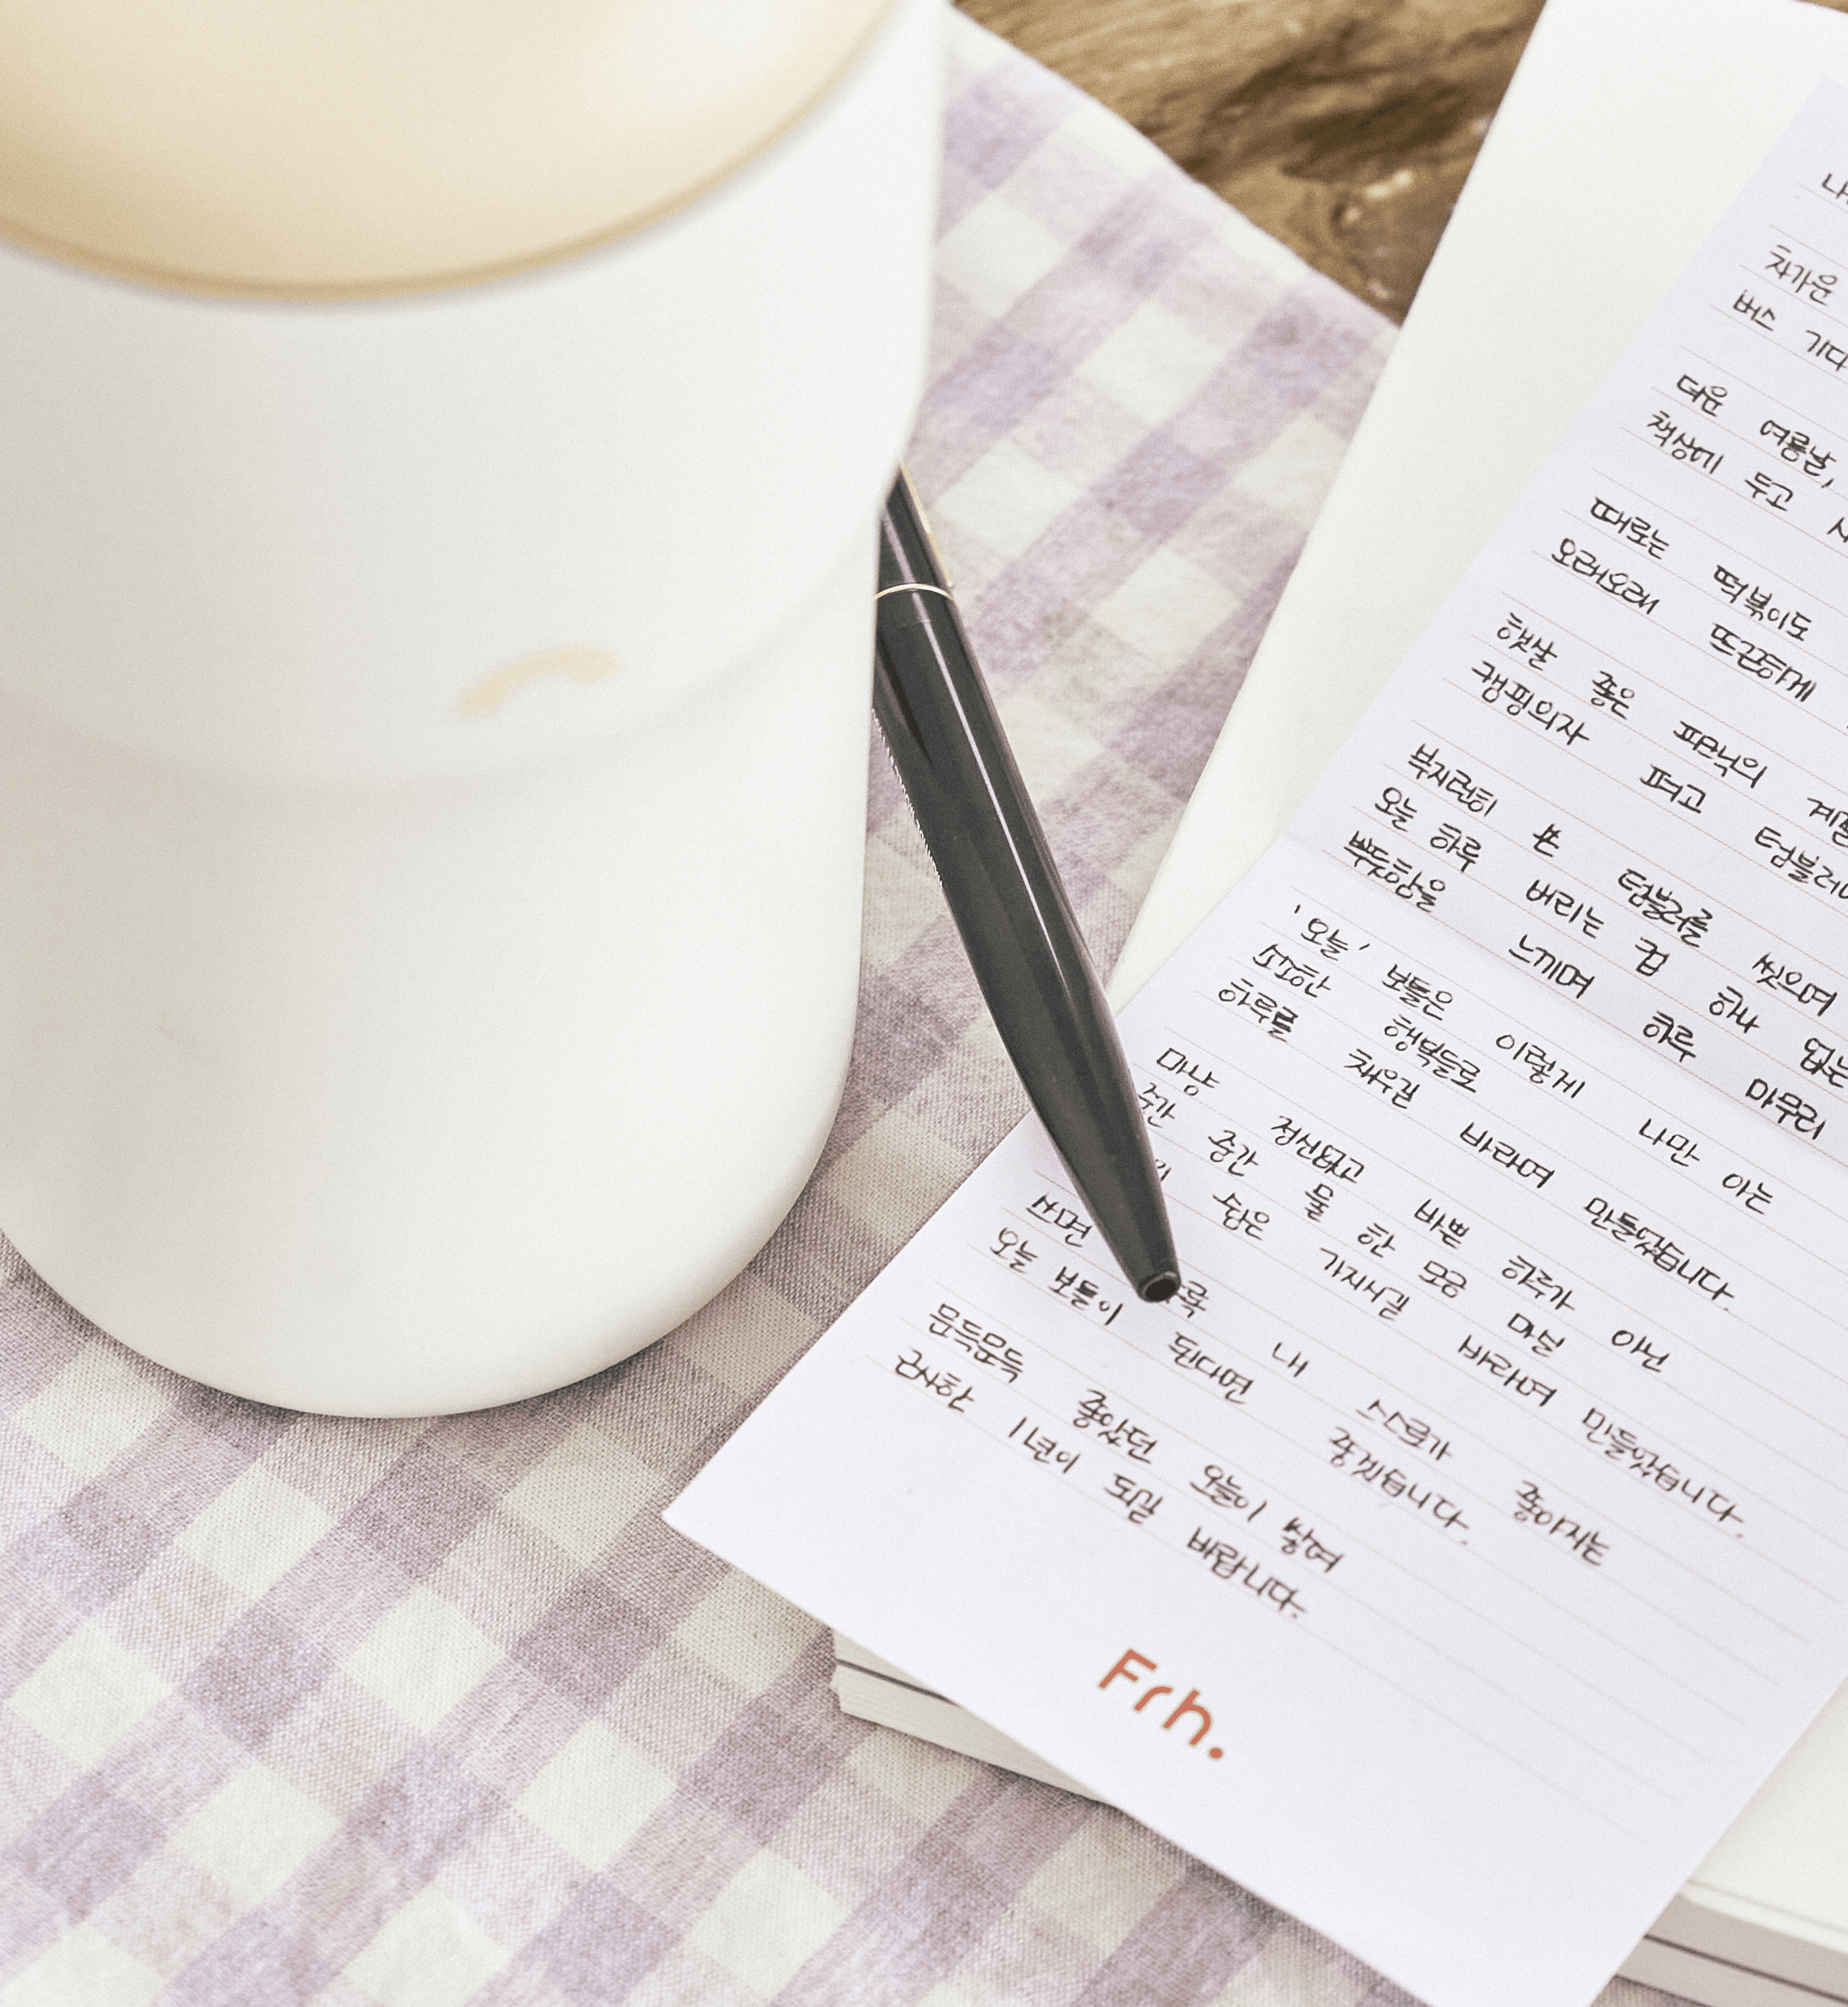 차가운
버스 기다
더운 여름날,
책상에 두고
때로는 떡볶이도
오래오래 뜨끈하게
햇살 좋은 피크닉의
캠핑의자 펴고 텀블러
부지런히 쓴 텀블러를 씻으며
오늘 하루 버리는 컵 하나 없는
뿌듯함을 느끼며 하루 마무리
'오늘' 보틀은 이렇게 나만 아는
소소한 행복들로
하루를 채우길 바라며 만들었습니다.
마냥 정신없고 바쁜 하루가 아닌
순간 중간 물 한 모금 마실
숨은 가지시길 바라며 만들었습니다.
쓰면 내 스스로가 좋아지는
오늘 보틀이 된다면 좋겠습니다.
문득문득 좋았던 오늘이 쌓여
근사한 1년이 되길 바랍니다.
Frh.